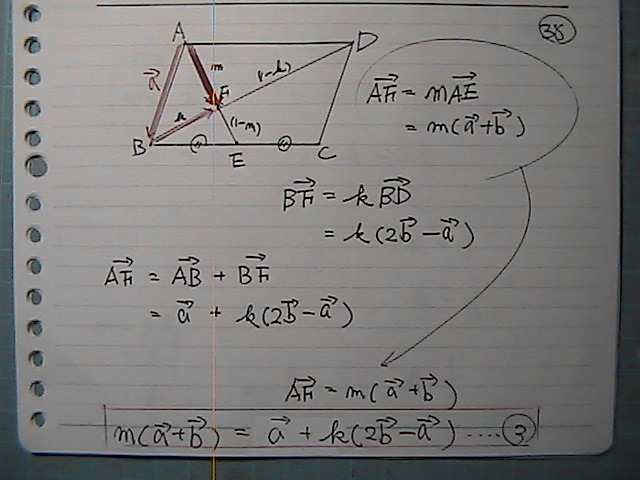 38
A
D
a⃗
m
(1-k)
F
k
(1-m)
B
E
C
AF⃗ = mAE⃗
= m(a⃗+b⃗)
BF⃗ = kBD⃗
= k(2b⃗-a⃗)
AF⃗ = AB⃗ + BF⃗
= a⃗ + k(2b⃗-a⃗)
AF⃗ = m(a⃗+b⃗)
m(a⃗+b⃗) = a⃗ + k(2b⃗-a⃗) ....③